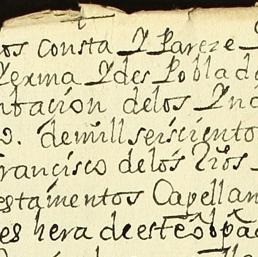 os consta Y Pareze
Yerma Y des Poblad
ntacion delos Yn
o. demill seiscientos
francisco delos Rios
estamentos Capellan
es hera de este obpa